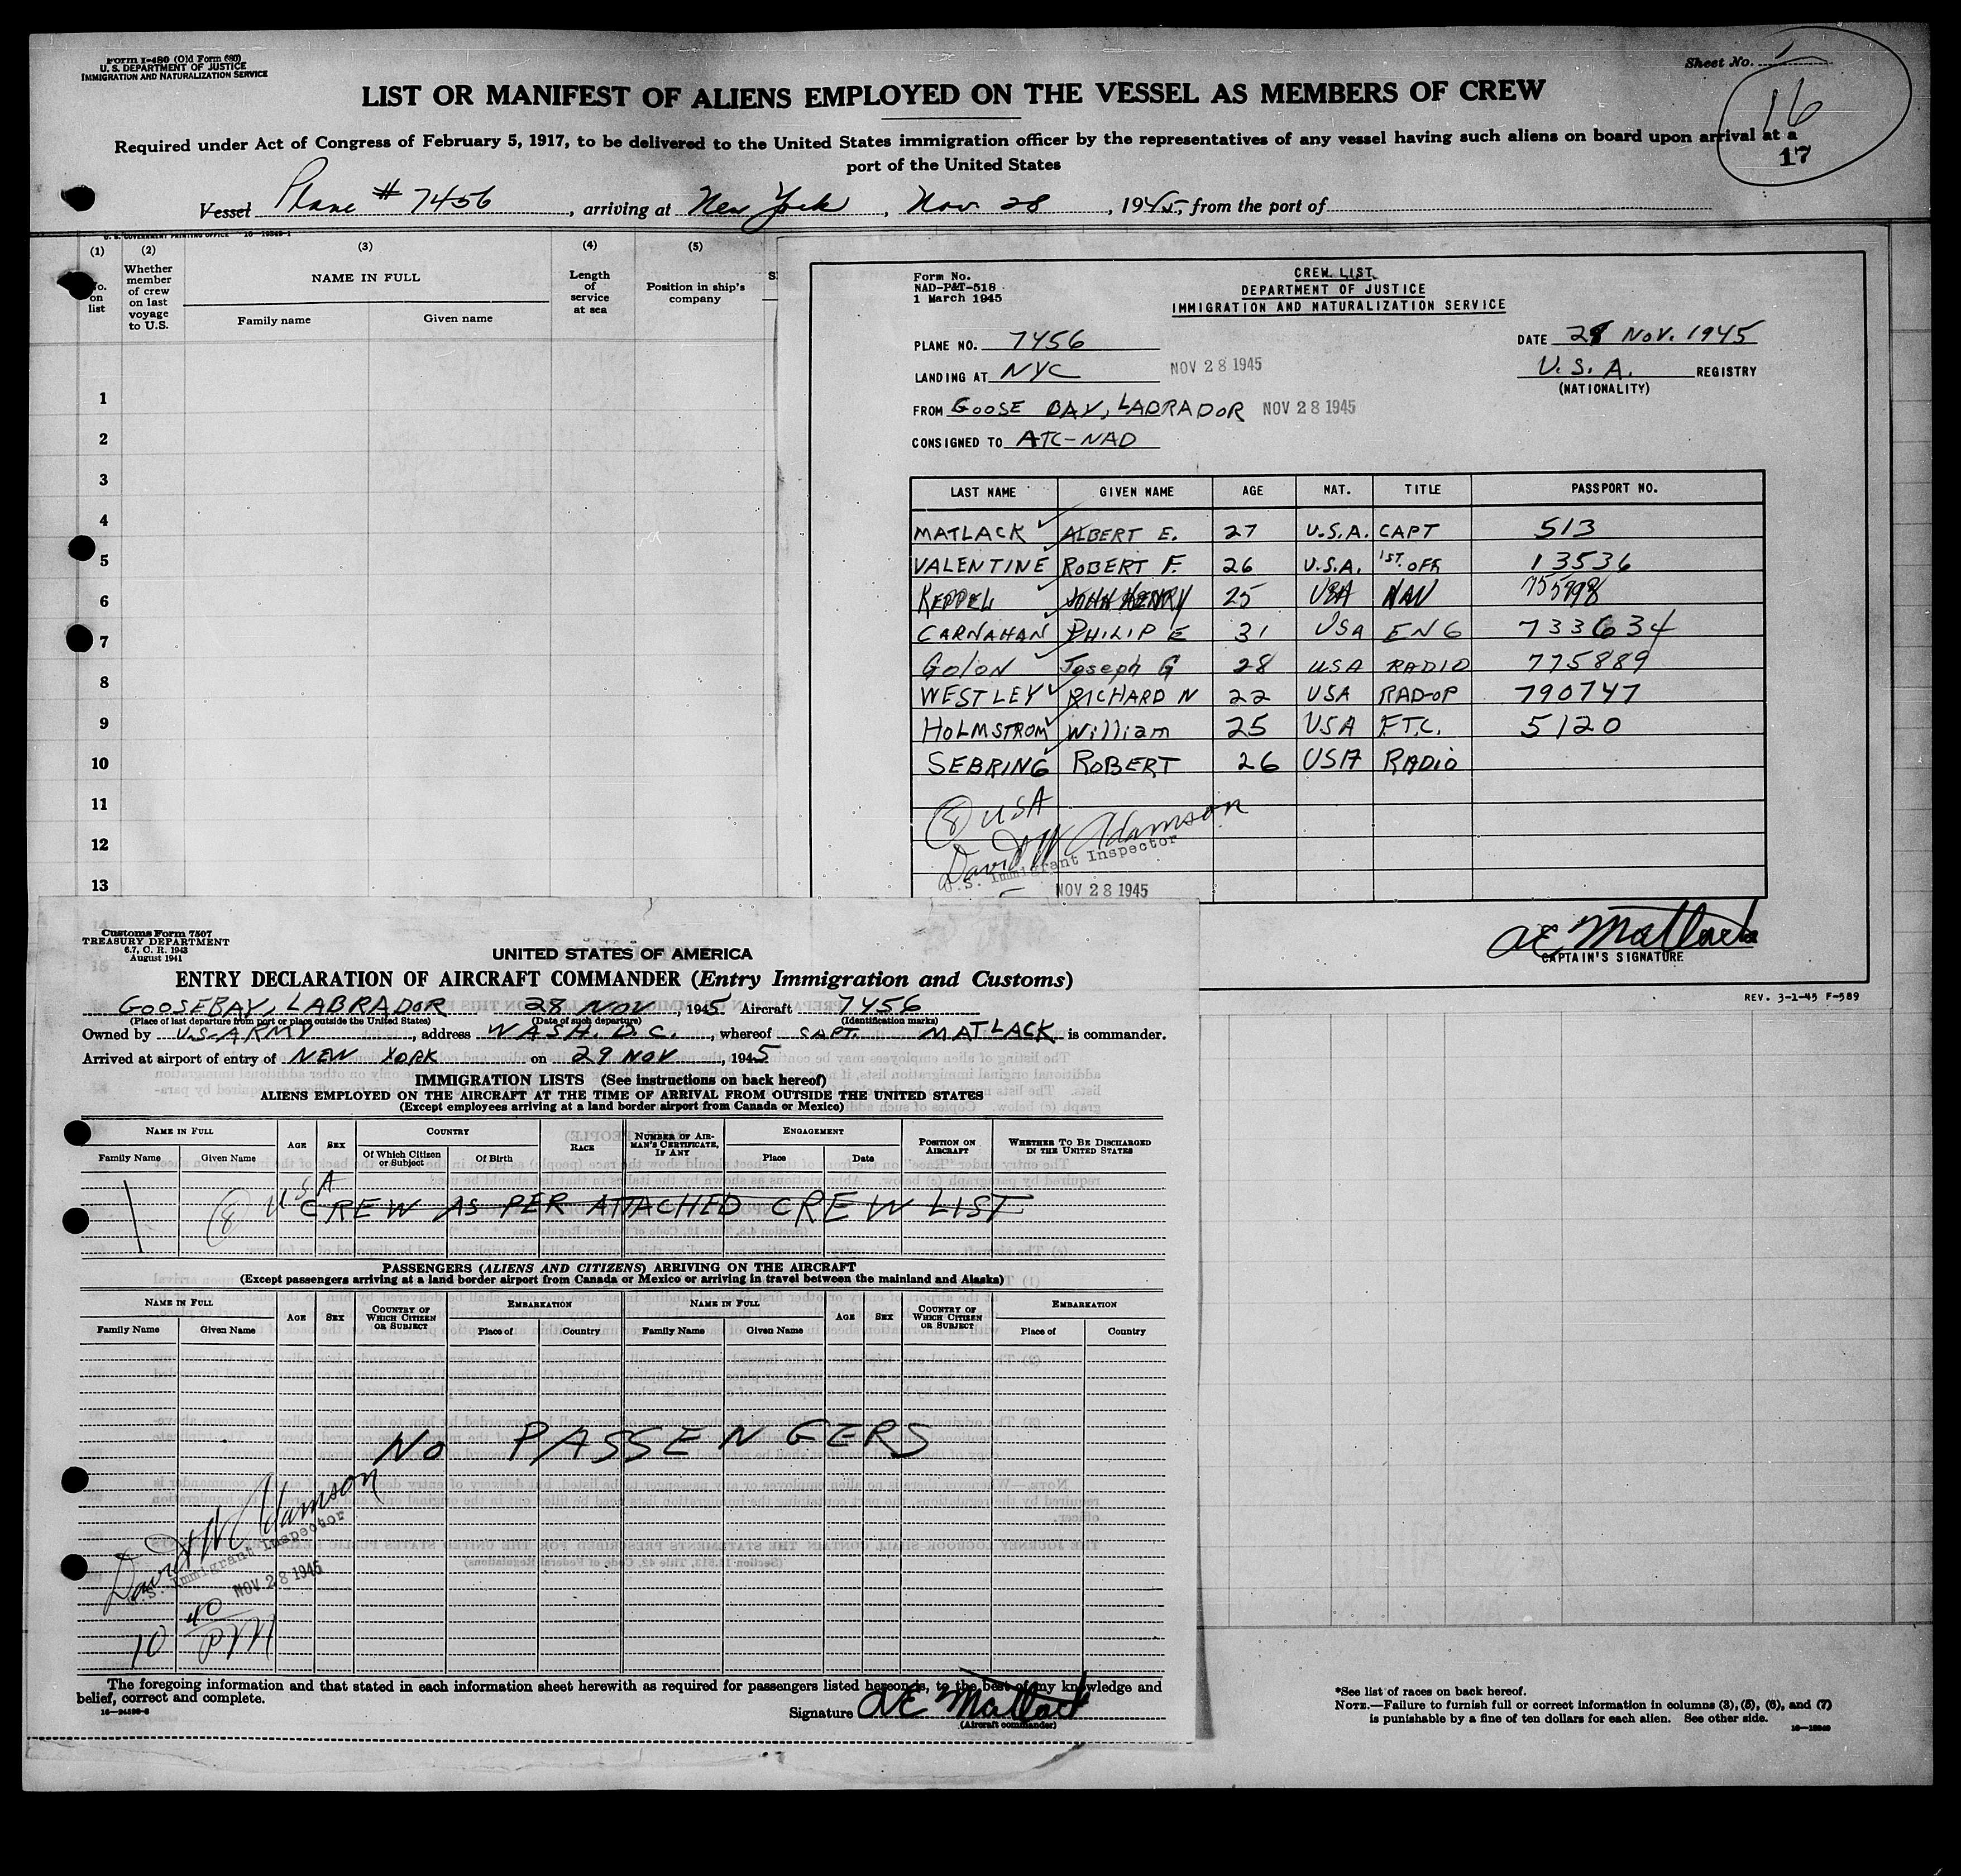 Form I-480 (Old Form 680)
U. S. DEPARTMENT OF JUSTICE
IMMIGRATION AND NATURALIZATION SERVICE
Sheet No.
16
17
LIST OR MANIFEST OF ALIENS EMPLOYED ON THE VESSEL AS MEMBERS OF CREW
Required under Act of Congress of February 5, 1917, to be delivered to the United States immigration officer by the representatives of any vessel having such aliens on board upon arrival at a
port of the United States
Vessel Plane # 7456, arriving at New York, Nov. 28, 1945, from the port of
U. S. GOVERNMENT PRINTING OFFICE
(1) (2) (3) (4) (5)
No. on list
Whether member of crew on last voyage to U.S.
NAME IN FULL
Family name Given name
Length of service at sea
Position in ship's company
1
2
3
4
5
6
7
8
9
10
11
12
13
Form No.
NAD-P&T-518
1 March 1945
CREW LIST
DEPARTMENT OF JUSTICE
IMMIGRATION AND NATURALIZATION SERVICE
PLANE NO. 7456
DATE 28 NOV. 1945
LANDING AT NYC NOV 28 1945
U.S.A. REGISTRY
(NATIONALITY)
FROM GOOSE BAY, LABRADOR NOV 28 1945
CONSIGNED TO ATC-NAD
LAST NAME GIVEN NAME AGE NAT. TITLE PASSPORT NO.
MATLACK ALBERT E. 27 U.S.A. CAPT 513
VALENTINE ROBERT F. 26 U.S.A. 1ST. OFF 13536
KEPPEL JOHN HENRY 25 USA NAV 755798
CARNAHAN PHILIP E 31 USA ENG 733634
Golon Joseph G 28 USA RADIO 775889
WESTLEY RICHARD N 22 USA RAD-OP 790747
HOLMSTROM William 25 USA F.T.C. 5120
SEBRING ROBERT 26 USA RADIO
(8) USA
David W Adamson
U.S. Immigrant Inspector
NOV 28 1945
AE Matlack
CAPTAIN'S SIGNATURE
REV. 3-1-45 F-589
Customs Form 7507
TREASURY DEPARTMENT
6.7, C. R. 1943
August 1941
UNITED STATES OF AMERICA
ENTRY DECLARATION OF AIRCRAFT COMMANDER (Entry Immigration and Customs)
GOOSEBAY, LABRADOR 28 NOV, 1945 Aircraft 7456
(Place of last departure from port or place outside the United States) (Date of such departure) (Identification marks)
Owned by U.S. ARMY, address WASH. D.C., whereof CAPT. MATLACK is commander.
Arrived at airport of entry of NEW YORK on 29 NOV, 1945
IMMIGRATION LISTS (See instructions on back hereof)
ALIENS EMPLOYED ON THE AIRCRAFT AT THE TIME OF ARRIVAL FROM OUTSIDE THE UNITED STATES
(Except employees arriving at a land border airport from Canada or Mexico)
NAME IN FULL AGE SEX COUNTRY RACE NUMBER OF AIRMAN'S CERTIFICATE, IF ANY ENGAGEMENT POSITION ON AIRCRAFT WHETHER TO BE DISCHARGED IN THE UNITED STATES
Family Name Given Name Of Which Citizen or Subject Of Birth Place Date
(8) USA
CREW AS PER ATTACHED CREW LIST
PASSENGERS (ALIENS AND CITIZENS) ARRIVING ON THE AIRCRAFT
(Except passengers arriving at a land border airport from Canada or Mexico or arriving in travel between the mainland and Alaska)
NAME IN FULL AGE SEX COUNTRY OF WHICH CITIZEN OR SUBJECT EMBARKATION NAME IN FULL AGE SEX COUNTRY OF WHICH CITIZEN OR SUBJECT EMBARKATION
Family Name Given Name Place of Country Family Name Given Name Place of Country
NO PASSENGERS
David W Adamson
U.S. Immigrant Inspector
NOV 28 1945
10 40 PM
The foregoing information and that stated in each information sheet herewith as required for passengers listed hereon is, to the best of my knowledge and
belief, correct and complete.
Signature AE Matlack
(Aircraft commander)
*See list of races on back hereof.
NOTE.—Failure to furnish full or correct information in columns (3), (5), (6), and (7)
is punishable by a fine of ten dollars for each alien. See other side.